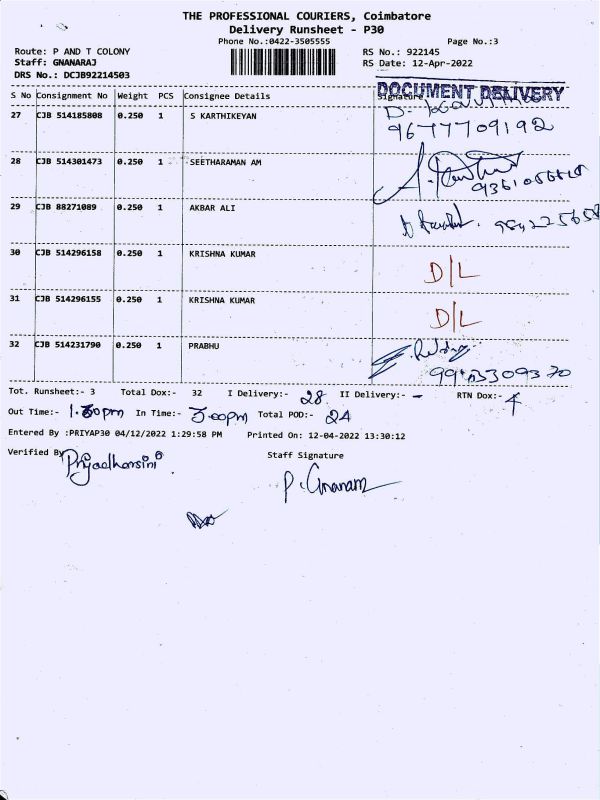 THE PROFESSIONAL COURIERS, Coimbatore
Delivery Runsheet - P30
Phone No.:0422-3505555
Page No.:3
Route: P AND T COLONY
RS No.: 922145
Staff: GNANARAJ
RS Date: 12-Apr-2022
DRS No.: DCJB92214503
DOCUMENT DELIVERY
S No Consignment No Weight PCS Consignee Details Signature
27 CJB 514185808 0.250 1 S KARTHIKEYAN
9677709192
28 CJB 514301473 0.250 1 SEETHARAMAN AM
29 CJB 88271089 0.250 1 AKBAR ALI
30 CJB 514296158 0.250 1 KRISHNA KUMAR D/L
31 CJB 514296155 0.250 1 KRISHNA KUMAR D/L
32 CJB 514231790 0.250 1 PRABHU
Tot. Runsheet:- 3 Total Dox:- 32 I Delivery:- 28 II Delivery:- - RTN Dox:- 4
Out Time:- 1.30pm In Time:- 5.00pm Total POD:- 24
Entered By :PRIYAP30 04/12/2022 1:29:58 PM Printed On: 12-04-2022 13:30:12
Verified By Priyadharsini Staff Signature
P. Gnanam